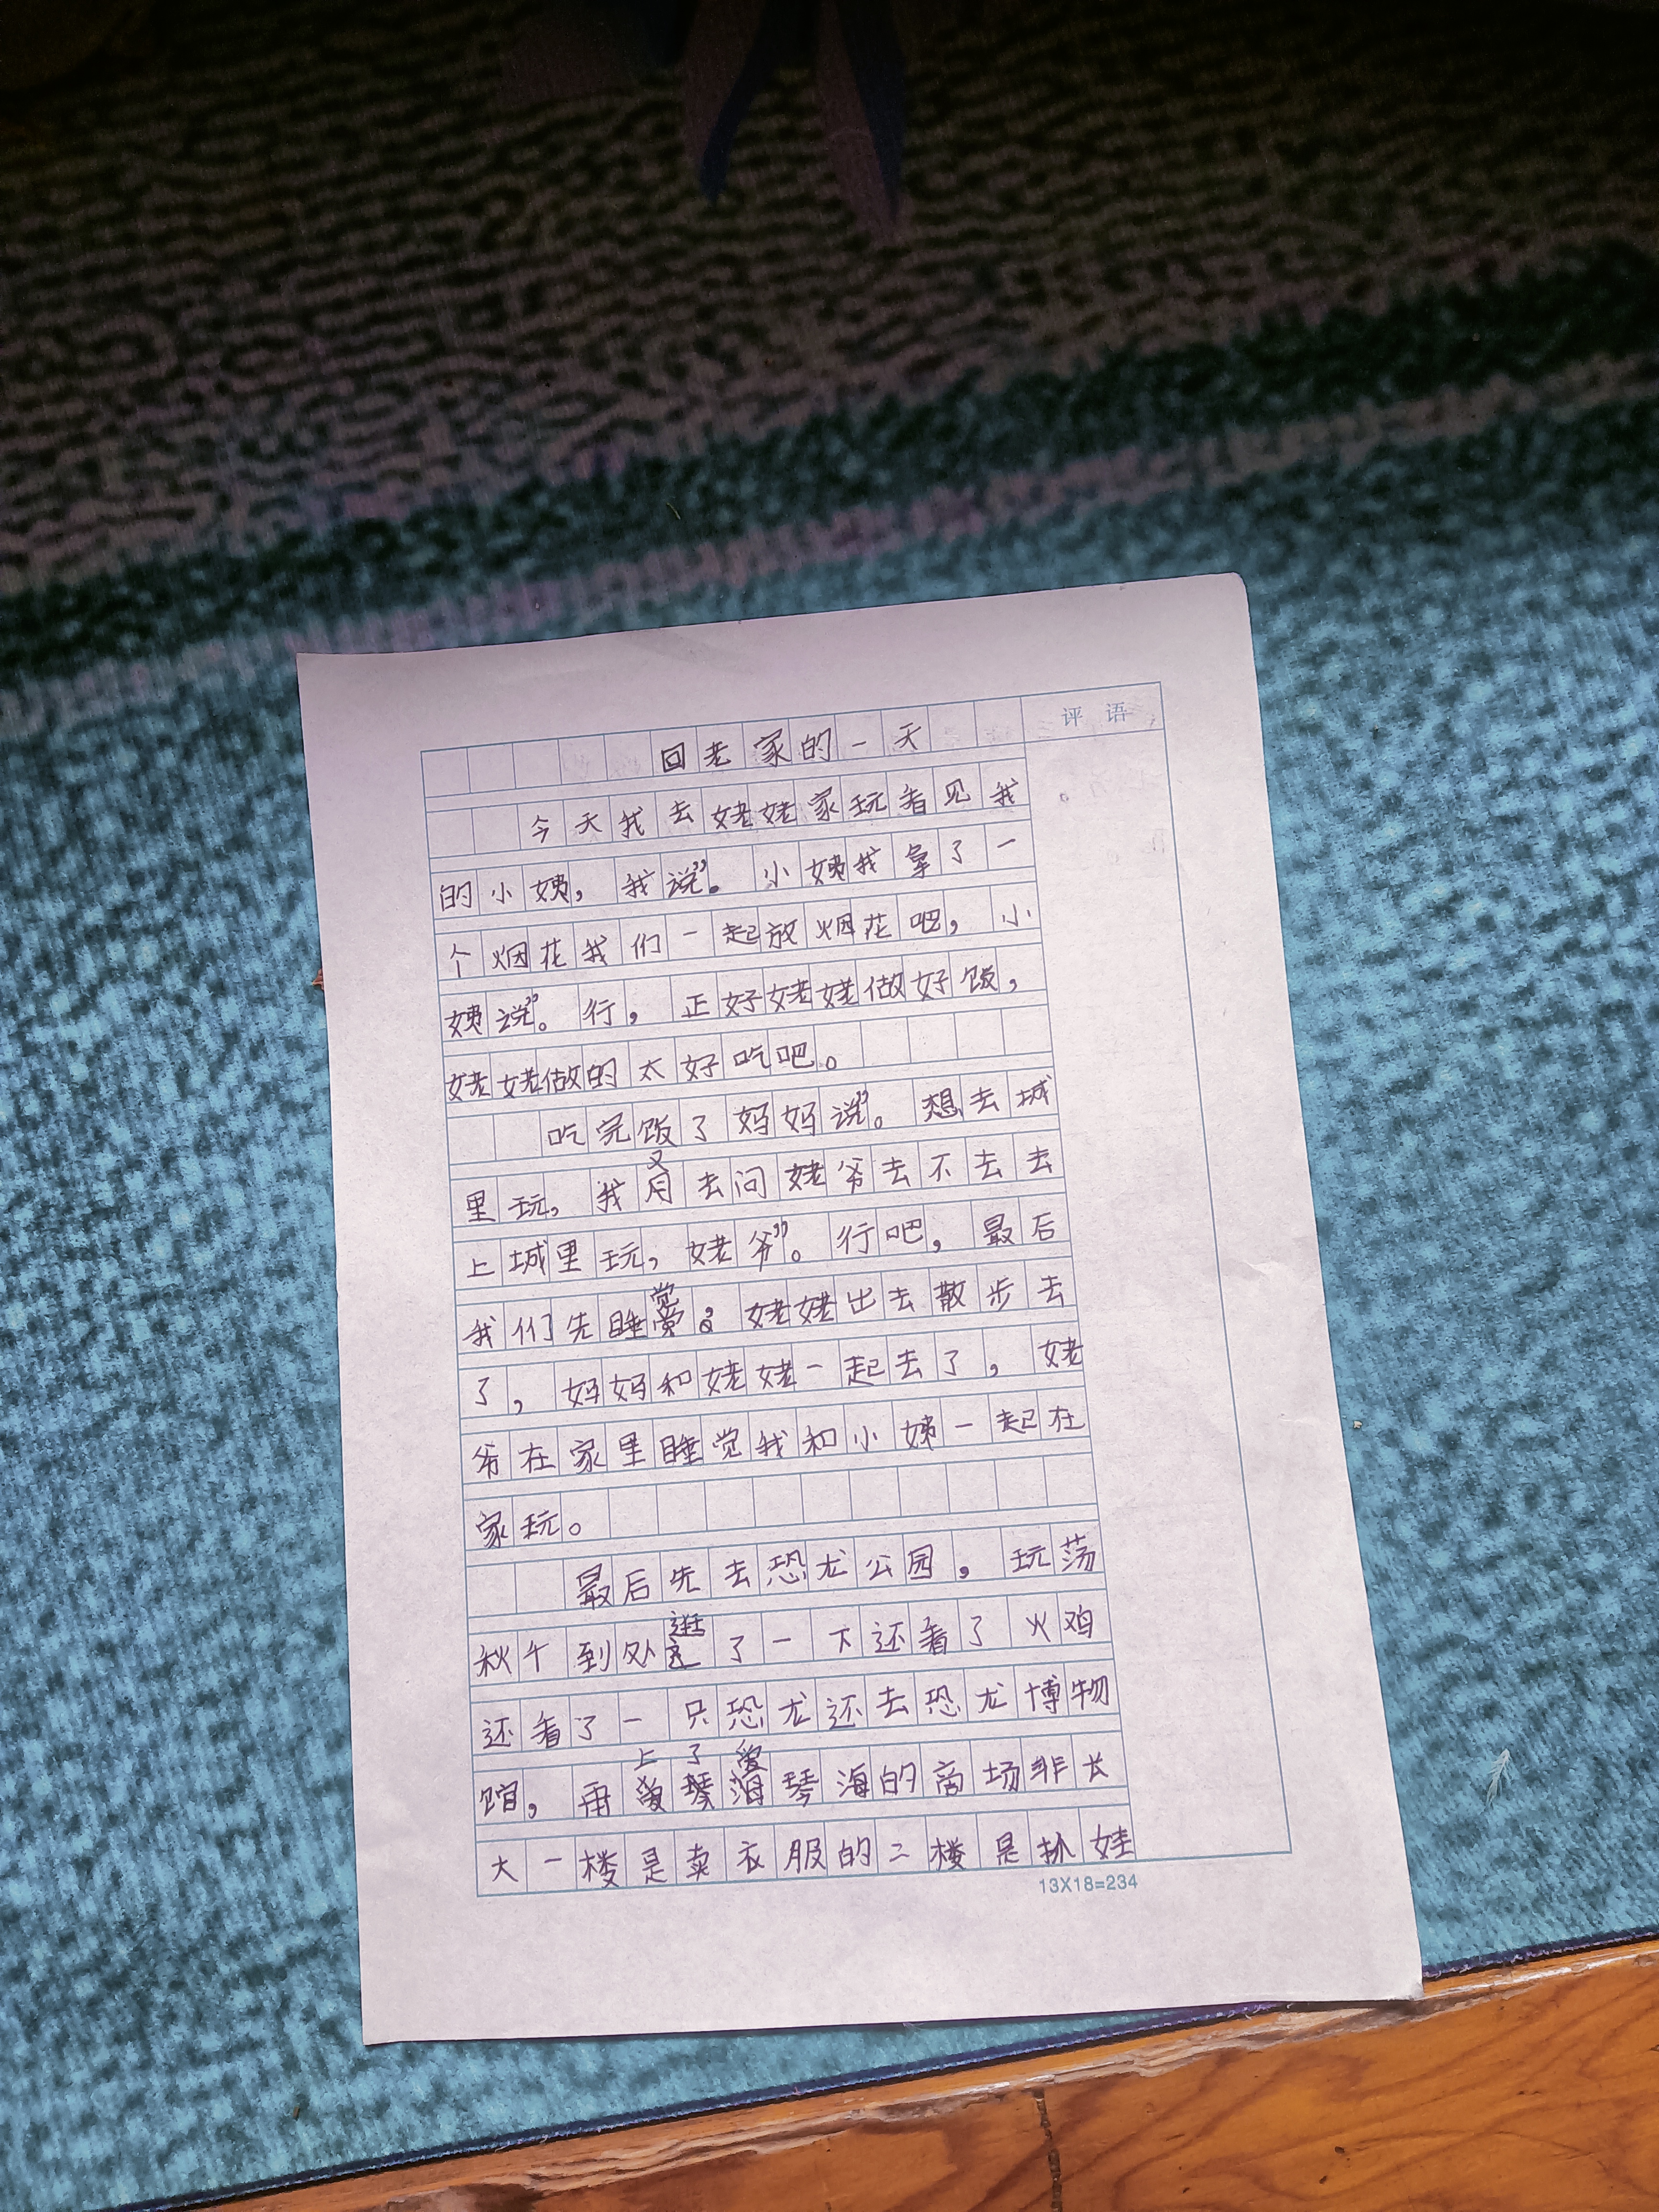 回老家的一天
评 语
今天我去姥姥家玩看见我
的小姨，我说”。小姨我拿了一
个烟花我们一起放烟花吧，小
姨说”。行，正好姥姥做好饭，
姥姥做的太好吃吧。
吃完饭了妈妈说”。想去城
又
里玩，我用去问姥爷去不去去
上城里玩，姥爷”。行吧，最后
觉
我们先睡，姥姥出去散步去
了，妈妈和姥姥一起去了，姥
爷在家里睡觉我和小姨一起在
家玩。
最后先去恐龙公园，玩荡
逛
秋千到处了一下还看了火鸡
还看了一只恐龙还去恐龙博物
上了爱
馆，再爱琴海琴海的商场非长
大一楼是卖衣服的二楼是抓娃
13X18=234